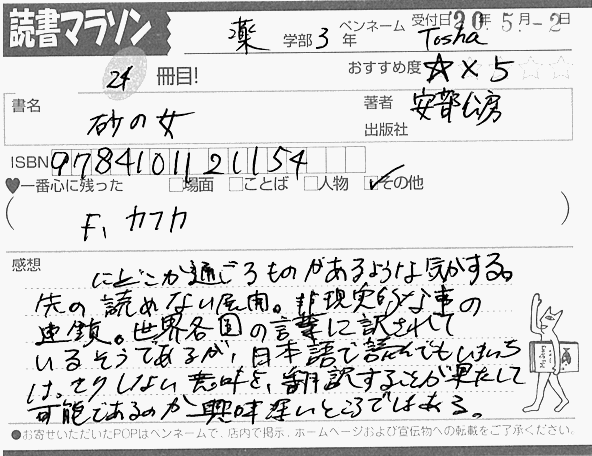 読書マラソン
薬 学部 3 年 ペンネーム Tosha 受付日 20年 5月-2日
24 冊目! おすすめ度 ☆×5 ☆☆
書名 砂の女 著者 安部公房
出版社
ISBN 9784101121154
♥一番心に残った □場面 □ことば □人物 ☑その他
( F, カフカ )
感想 にどこか通じるものがあるような気がする。
先の読めない展開。非現実的な事の
連鎖。世界各国の言葉に訳されて
いるそうであるが、日本語で読んでもいまいち
はっきりしない意味を、翻訳することが果たして
可能であるのか興味深いところではある。
●お寄せいただいたPOPはペンネームで、店内で掲示、ホームページおよび宣伝物への転載をご了承ください.